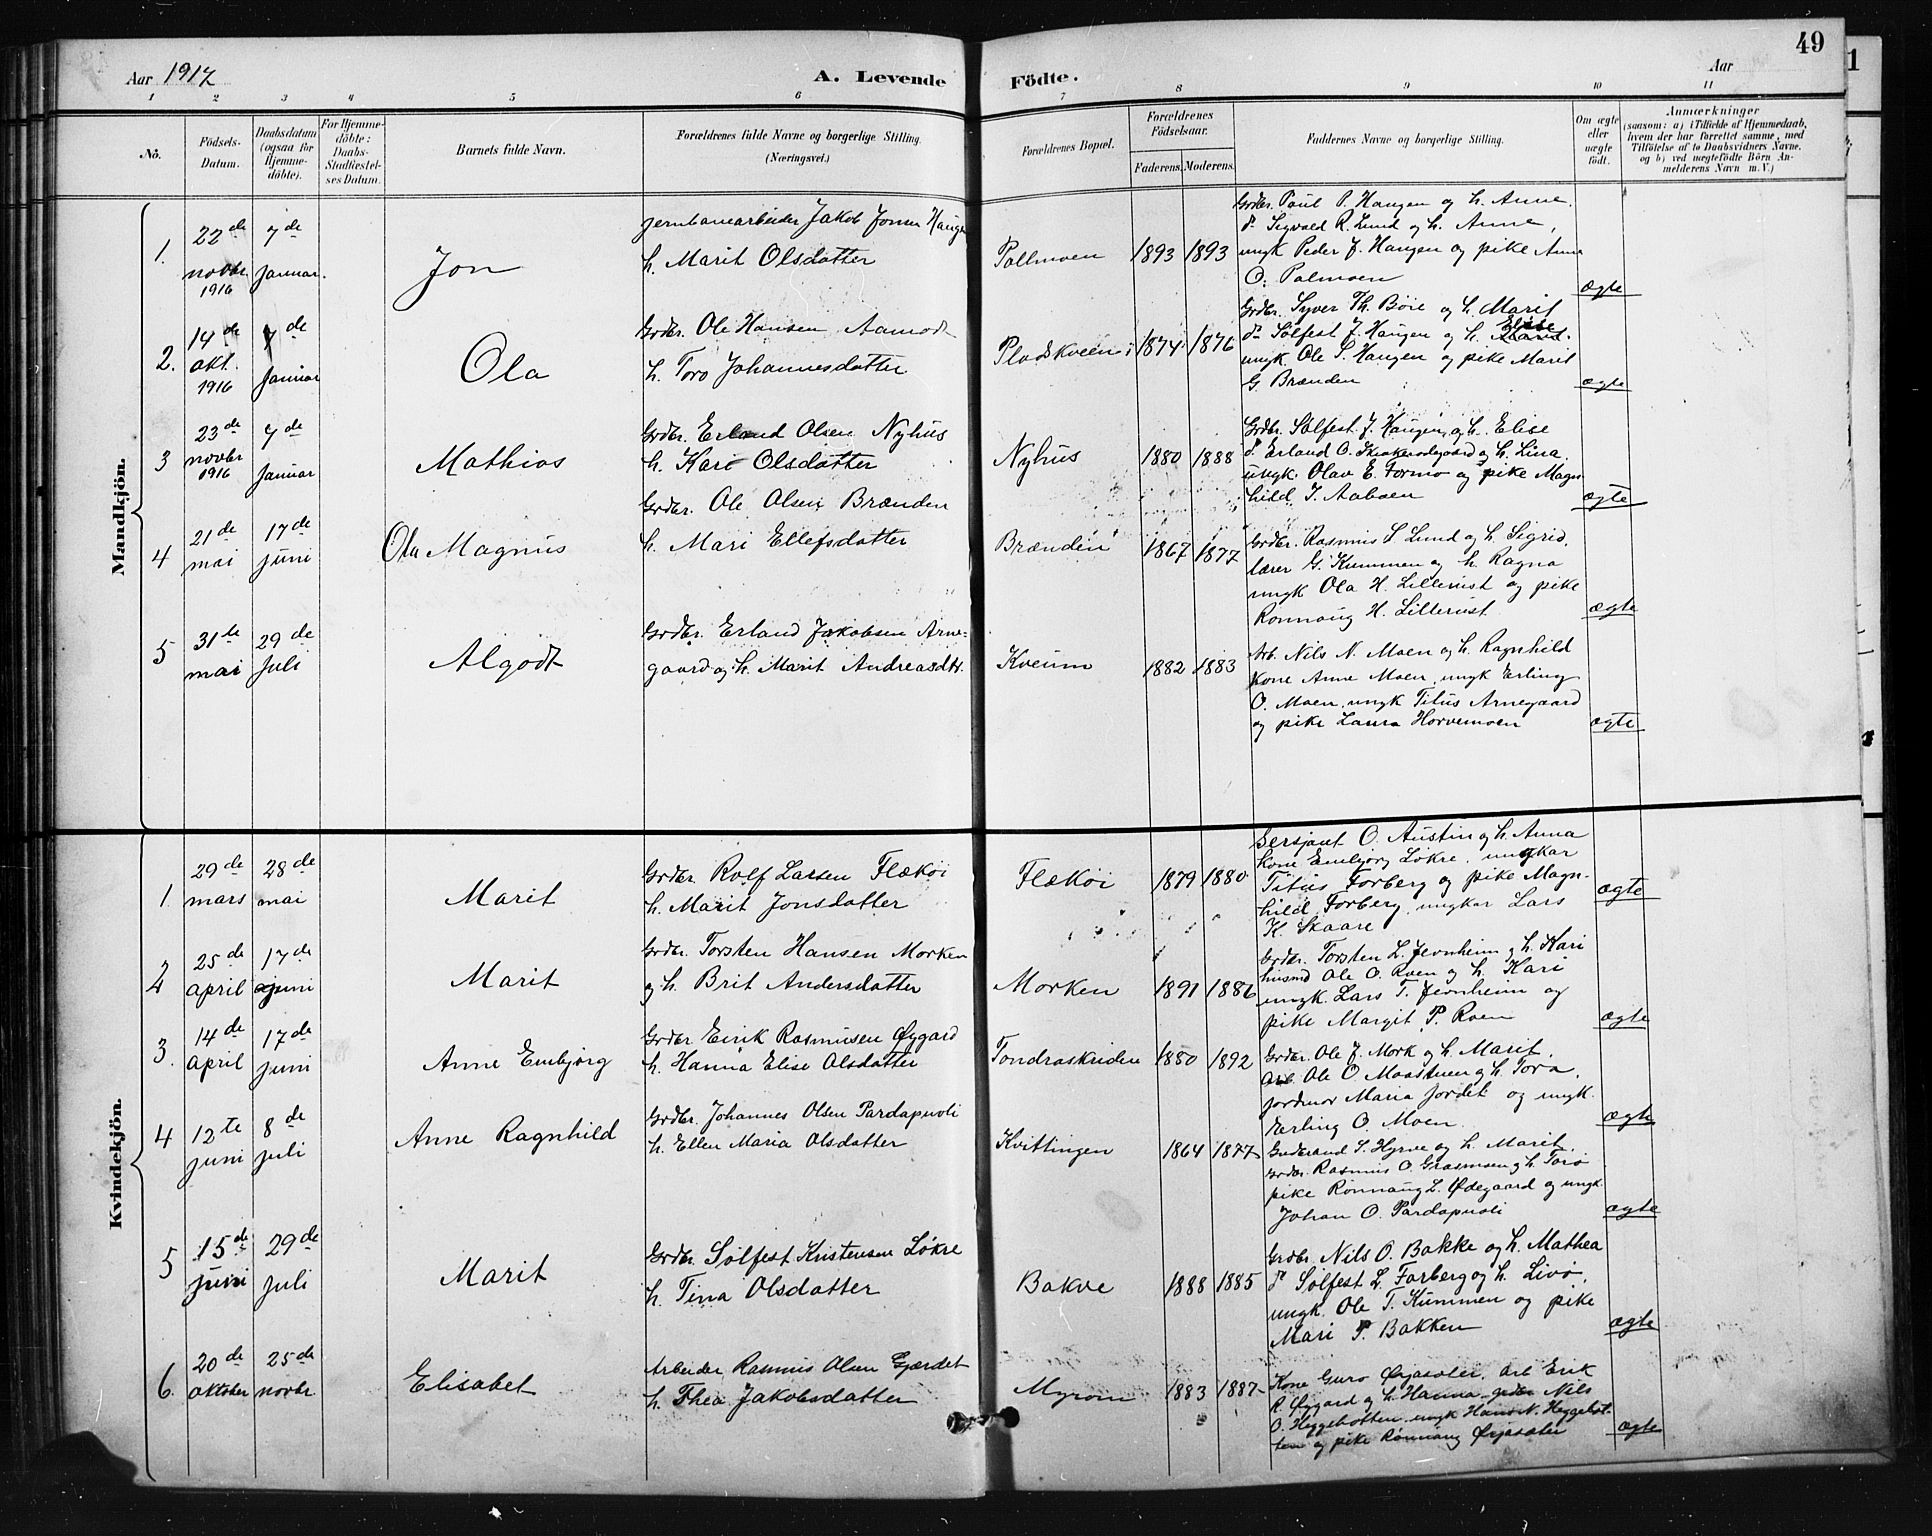 49
Aar 1917
A. Levende
Födte.
Aar
1 2 3 4 5 6 7 8 9 10 11
No.
Födsels-
Datum.
Daabsdatum
(ogsaa for
Hjemme-
döbte).
For Hjemme-
döbte:
Daabs-
Stadfæstel-
ses Datum.
Barnets fulde Navn.
Forældrenes fulde Navne og borgerlige Stilling.
(Næringsvei.)
Forældrenes Bopæl.
Forældrenes
Födselsaar.
Faderens.
Moderens.
Faddernes Navne og borgerlig Stilling.
Om ægte
eller
uægte
födt.
Anmærkninger
(saasom: a) i Tilfælde af Hjemmedaab,
hvem der har forrettet samme, med
Tilföielse af to Daabsvidners Navne.
og b) ved uægtefödte Börn An-
melderens Navn m. V.)
Mandkjön.
1.
22de
novbr.
1916
7de
januar.
Jon
jernbanearbeider Jakob Jonsen Haugen
h. Marit Olsdatter
Pollmoen
1893
1893
Grdbr. Paul P. Haugen og h. Anne.
do Sigvald R. Lund og h. Anne,
ungk Peder J. Haugen og pike Anne
O. Palmoen
ægte
2.
14de
okt.
1916
7de
Januar
Ola
Grdbr. Ole Hansen Aamodt
h. Toro Johannesdatter
1874
1876
Grdbr. Syver Th. Bøie og h. Marit
do Sølfest J. Haugen og h. Elise
ungk Ole S. Haugen og pike Marit
G. Brænden
ægte
3
23de
novbr
1916
7de
Januar
Mathias
Grdbr. Erland Olsen Nyhus
h. Kari Olsdatter
Nyhus
1880
1888
Grdbr. Sølfest J. Haugen og h. Elise
do Erland O. og h. Lina.
ungk. Olav E. Formo og pike Magn
hild J. Aaboen
ægte
4
21de
mai
17de
juni
Ola Magnus
Grdbr. Ole Olsen Brænden
h. Mari Ellefsdatter
Brænden
1867
1877
Grdbr. Rasmus S Lund og h. Sigrid.
lærer G. Kummen og h. Ragna
ungk Ola H. Lillerust og pike
Rønnaug H. Lillerust.
ægte
5
31te
mai
29de
juli
Algodt
Grdbr. Erland Jakobsen Arne-
gaard og h. Marit Andreasdtr.
Kveum
1882
1883
Arb. Nils N. Moen og h. Ragnhild
Kone Anne Moen, ungk Erling
O. Moen, ungk Titus Arnegaard
og pike Laura Horvemoen
ægte
Kvindekjön.
1.
29de
mars
28de
mai
Marit
Grdbr. Rolf Larsen Flækøi
h. Marit Jonsdatter
Flækøi
1879
1880
Sersjant O. Austin og h. Anna
Kone Embjørg Løkre, ungkar
Titus Forberg og pike Magn-
hild Forberg, ungkar Lars
K. Skaare
ægte
2
25de
april
17de
juni
Marit
Grdbr. Torsten Hansen Morken
og h. Brit Andersdatter
Morken
1891
1886
Grdbr. Torsten L. Jevnheim og h. Kari
husmd Ole O. Roen og h. Kari
ungk. Lars T. Jevnheim og
pike Margit P. Roen
ægte
3.
14de
april
17de
juni
Anne Embjørg
Grdbr Eirik Rasmusen Øygard
h. Hanna Elise Olsdatter
Tondraskriden
1880
1892
Grdbr. Ole J. Mork og h. Marit,
Arb. Ole O Moastuen og h. Tora,
jordmor Maria Jordet og ungk.
Erling O. Moen.
ægte
4
12te
juni
8de
juli
Anne Ragnhild
Grdbr. Johannes Olsen Pardapuoli
h. Ellen Maria Olsdatter
Kvittingen
1864
1877
Gudbrand S. Hyrve og h. Marit,
Grdbr. Rasmus O. Grasmoen og h. Toro
pike Rønnaug L. Ødegaard og ungk
Johan O. Pardapuoli
ægte
5
15de
juni
29de
juli
Marit
Grdbr Sølfest Kristensen Løkre
h. Tina Olsdatter
Bakve
1888
1885
Grdbr Nils O. Bakke og h. Mathea
do Sølfest L. Forberg og h. Livø,
ungk. Ole T. Kummen og pike
Mari P. Bakken
ægte
6.
20de
oktober
25de
novbr
Elisabet
Arbeider Rasmus Olsen Gjærdet
h. Thea Jakobsdatter
Myrom
1883
1887
Kone Guro Øijasæter, arb Erik
R. Øygard og h. Hanna grdbr Nils
O. Heggebotten, ungk Hans N. Heggebot-
ten og pike Rønnaug Øijasæter
ægte